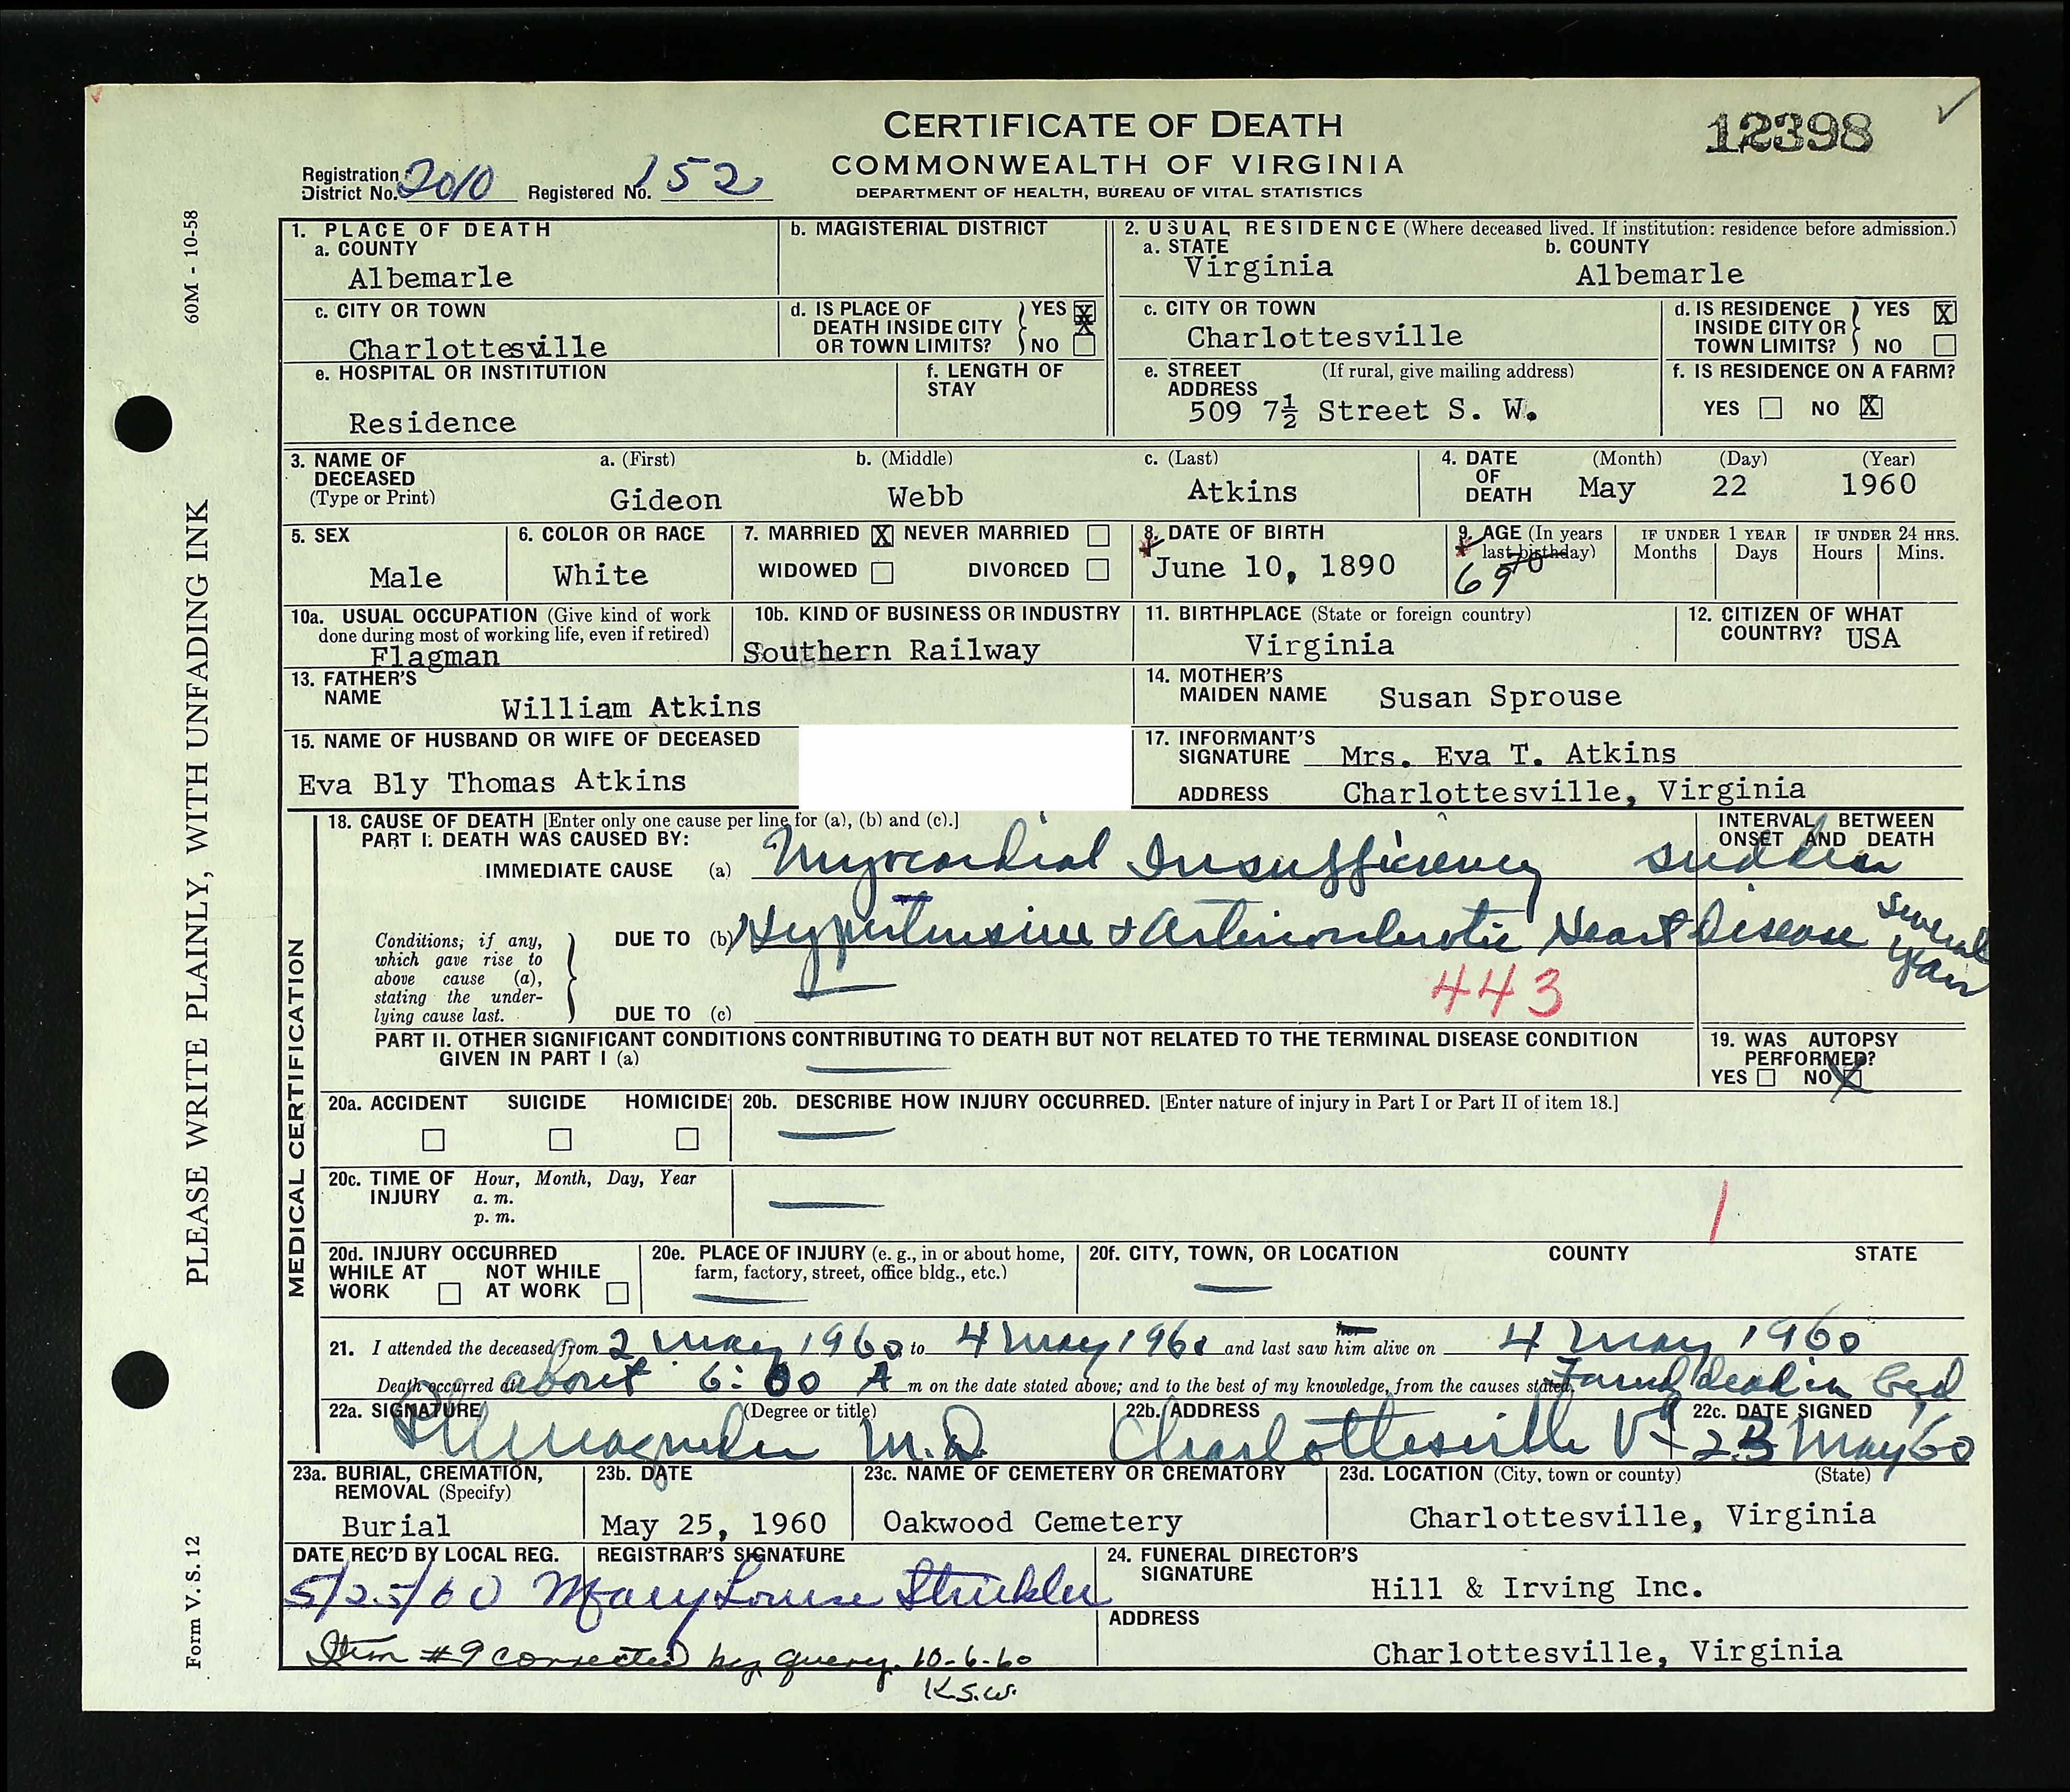 CERTIFICATE OF DEATH
COMMONWEALTH OF VIRGINIA
DEPARTMENT OF HEALTH, BUREAU OF VITAL STATISTICS
12398
Registration District No. 2010 Registered No. 152
60M - 10-58
PLEASE WRITE PLAINLY, WITH UNFADING INK
Form V. S. 12
1. PLACE OF DEATH
a. COUNTY
Albemarle
b. MAGISTERIAL DISTRICT
2. USUAL RESIDENCE (Where deceased lived. If institution: residence before admission.)
a. STATE
Virginia
b. COUNTY
Albemarle
c. CITY OR TOWN
Charlottesville
d. IS PLACE OF DEATH INSIDE CITY OR TOWN LIMITS? YES X NO
c. CITY OR TOWN
Charlottesville
d. IS RESIDENCE INSIDE CITY OR TOWN LIMITS? YES X NO
e. HOSPITAL OR INSTITUTION
Residence
f. LENGTH OF STAY
e. STREET ADDRESS (If rural, give mailing address)
509 7½ Street S. W.
f. IS RESIDENCE ON A FARM?
YES NO X
3. NAME OF DECEASED (Type or Print)
a. (First) b. (Middle) c. (Last)
Gideon Webb Atkins
4. DATE OF DEATH (Month) (Day) (Year)
May 22 1960
5. SEX
Male
6. COLOR OR RACE
White
7. MARRIED X NEVER MARRIED
WIDOWED DIVORCED
8. DATE OF BIRTH
June 10, 1890
9. AGE (In years last birthday)
70
69
IF UNDER 1 YEAR
Months Days
IF UNDER 24 HRS.
Hours Mins.
10a. USUAL OCCUPATION (Give kind of work done during most of working life, even if retired)
Flagman
10b. KIND OF BUSINESS OR INDUSTRY
Southern Railway
11. BIRTHPLACE (State or foreign country)
Virginia
12. CITIZEN OF WHAT COUNTRY? USA
13. FATHER'S NAME
William Atkins
14. MOTHER'S MAIDEN NAME Susan Sprouse
15. NAME OF HUSBAND OR WIFE OF DECEASED
Eva Bly Thomas Atkins
17. INFORMANT'S SIGNATURE Mrs. Eva T. Atkins
ADDRESS Charlottesville, Virginia
MEDICAL CERTIFICATION
18. CAUSE OF DEATH [Enter only one cause per line for (a), (b) and (c).]
PART I. DEATH WAS CAUSED BY:
INTERVAL BETWEEN ONSET AND DEATH
IMMEDIATE CAUSE (a) Myocardial Insufficiency sudden
Conditions, if any, which gave rise to above cause (a), stating the underlying cause last.
DUE TO (b) Hypertensive & Arteriosclerotic Heart Disease several years
443
DUE TO (c)
PART II. OTHER SIGNIFICANT CONDITIONS CONTRIBUTING TO DEATH BUT NOT RELATED TO THE TERMINAL DISEASE CONDITION GIVEN IN PART I (a)
19. WAS AUTOPSY PERFORMED?
YES NO X
20a. ACCIDENT SUICIDE HOMICIDE
20b. DESCRIBE HOW INJURY OCCURRED. [Enter nature of injury in Part I or Part II of item 18.]
20c. TIME OF INJURY Hour, Month, Day, Year
a. m.
p. m.
1
20d. INJURY OCCURRED
WHILE AT WORK NOT WHILE AT WORK
20e. PLACE OF INJURY (e. g., in or about home, farm, factory, street, office bldg., etc.)
20f. CITY, TOWN, OR LOCATION COUNTY STATE
21. I attended the deceased from 2 May 1960 to 4 May 1960 and last saw him alive on 4 May 1960
Death occurred at about 6:00 A m on the date stated above; and to the best of my knowledge, from the causes stated. Found dead in bed
22a. SIGNATURE (Degree or title)
M.D.
22b. ADDRESS
Charlottesville Va
22c. DATE SIGNED
23 May 60
23a. BURIAL, CREMATION, REMOVAL (Specify)
Burial
23b. DATE
May 25, 1960
23c. NAME OF CEMETERY OR CREMATORY
Oakwood Cemetery
23d. LOCATION (City, town or county) (State)
Charlottesville, Virginia
DATE REC'D BY LOCAL REG.
5/25/60
REGISTRAR'S SIGNATURE
Mary Louise Strickler
24. FUNERAL DIRECTOR'S SIGNATURE
Hill & Irving Inc.
ADDRESS
Charlottesville, Virginia
Item #9 corrected by query. 10-6-60
K.S.W.